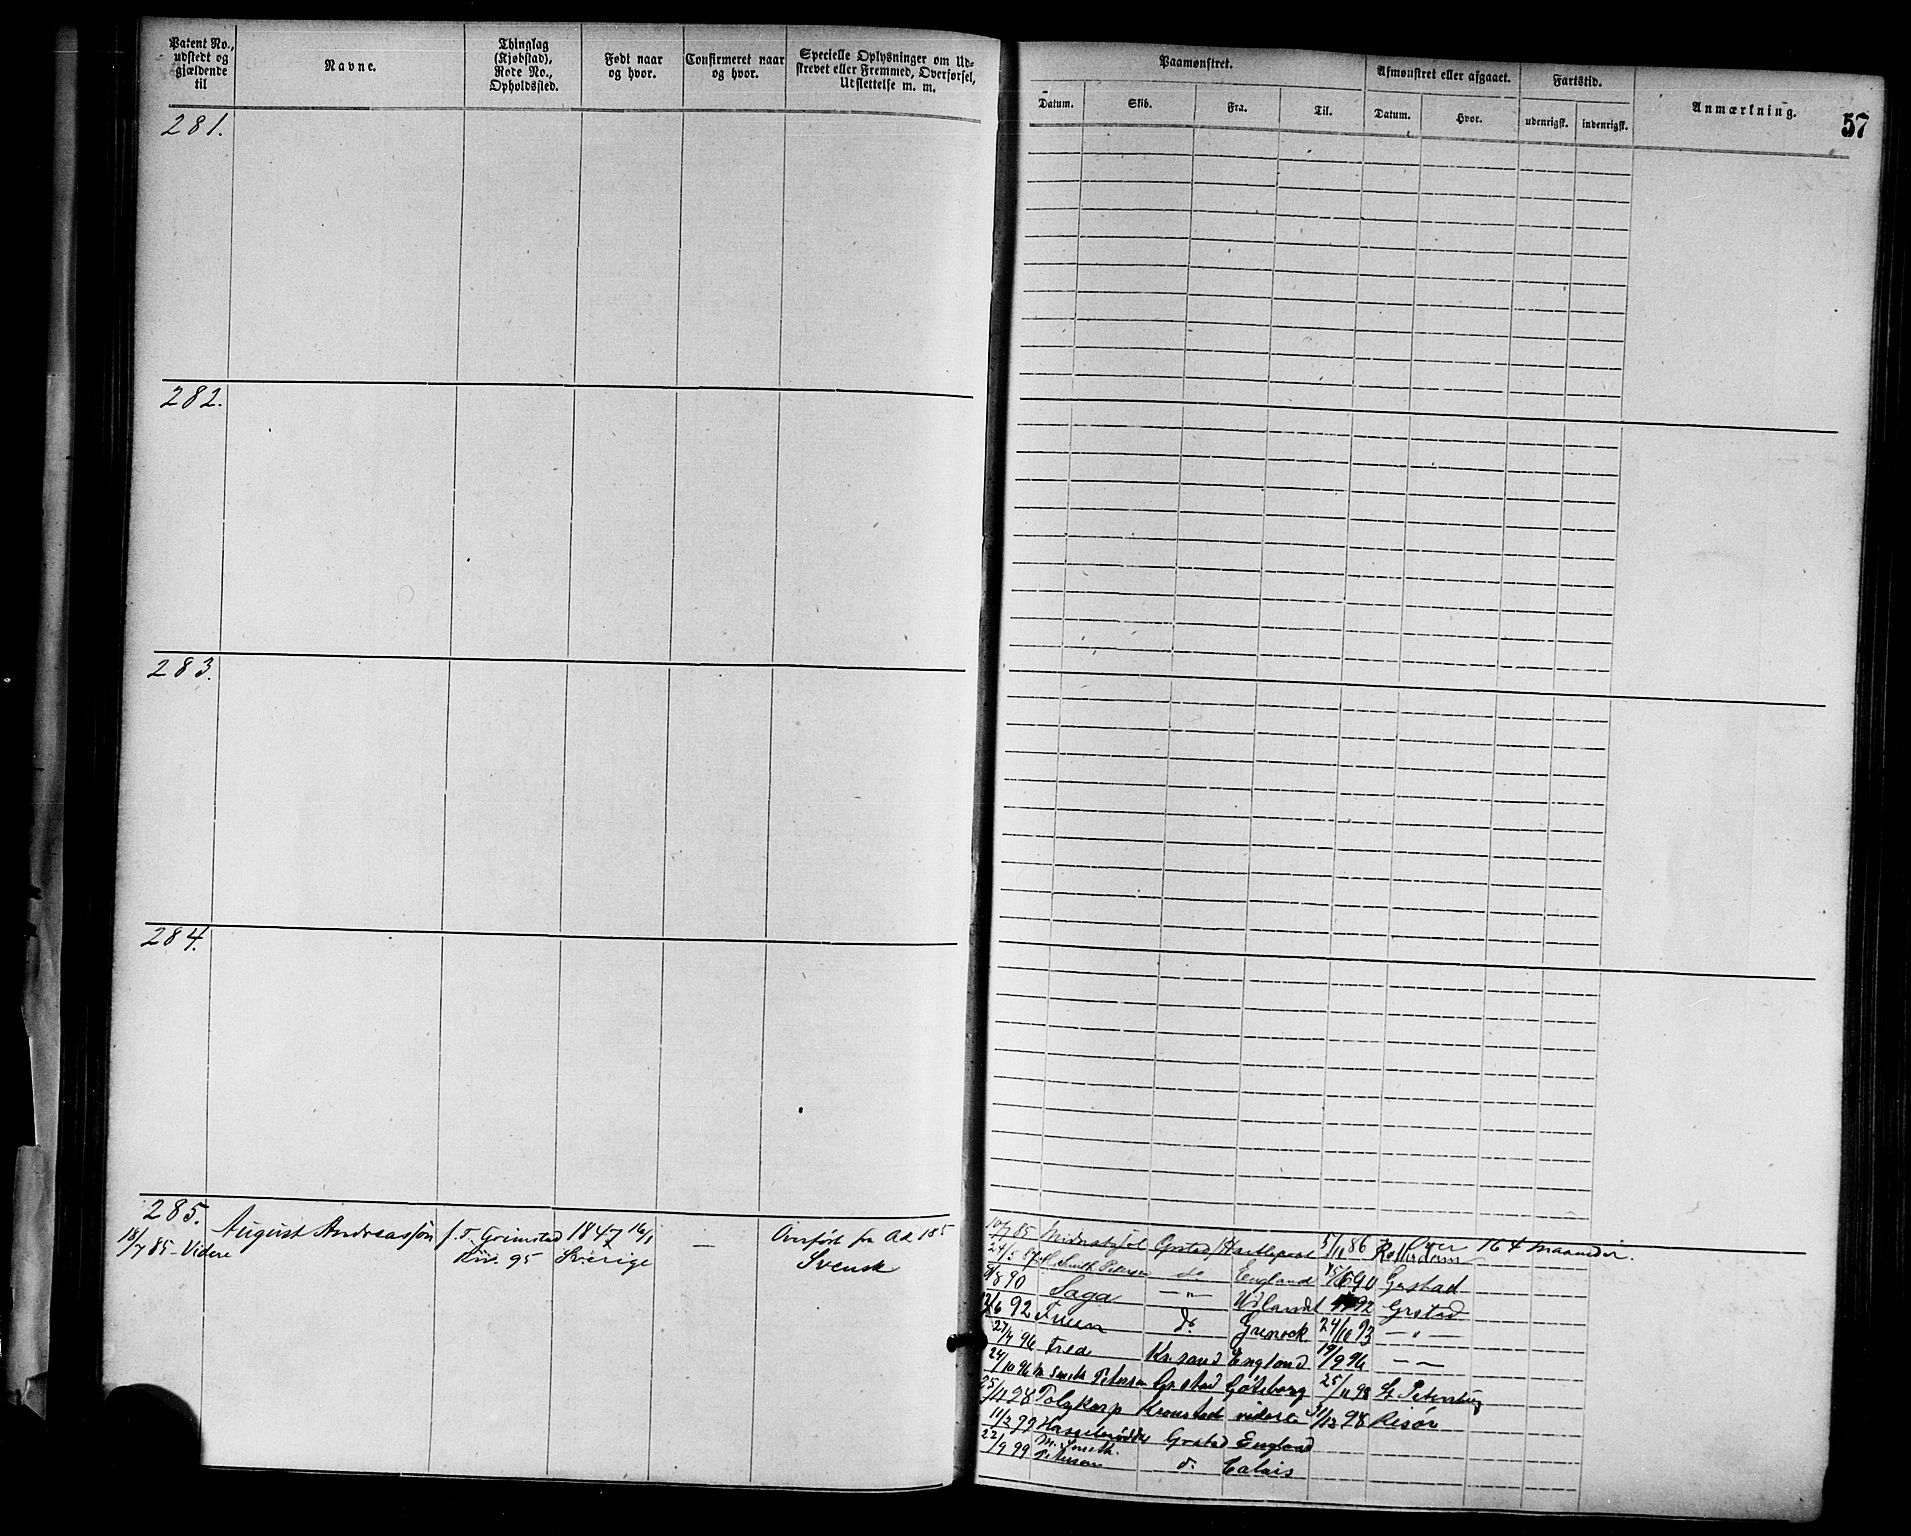 Patent No., udstedt og gjældende til
Navne.
Thinglag (Kjøbstad), Rode No., Opholdssted.
Født naar og hvor.
Confirmeret naar og hvor.
Specielle Oplysninger om Udskrevet eller Fremmed, Overførsel, Udslettelse m. m.
Paamønstret.
Afmønstret eller afgaaet.
Fartstid.
Anmærkning.
57
Datum.
Skib.
Fra.
Til.
Datum.
Hvor.
udenrigsk.
indenrigsk.
281.
282.
283.
284.
285.
18/7 85 - Videre
August Andreassøn
f. T. Grimstad
95
1847 16/1
Sverige
—
Overført fra Ad 185
Svensk
10/7 85 Grstad Hartlepool 5/11 86 Rotterdam Over 164 maaneder.
24/5 Smith Petersen do England 15/6 90 Grstad
8/8 90 Saga — " — Udlandet 92 Grstad
12/6 92 do Grenock 24/10 93 — " —
27/7 96 Fred Kr.sand England 19/9 96 — " —
24/10 96 M Smith Petersen Grstad Göteborg 25/11 98 St Petersburg
25/11 98 Polykarp Kronstad videre 31/12 98 Risør
11/2 99 Grstad England
22/9 99 M. Smith Petersen do Calais